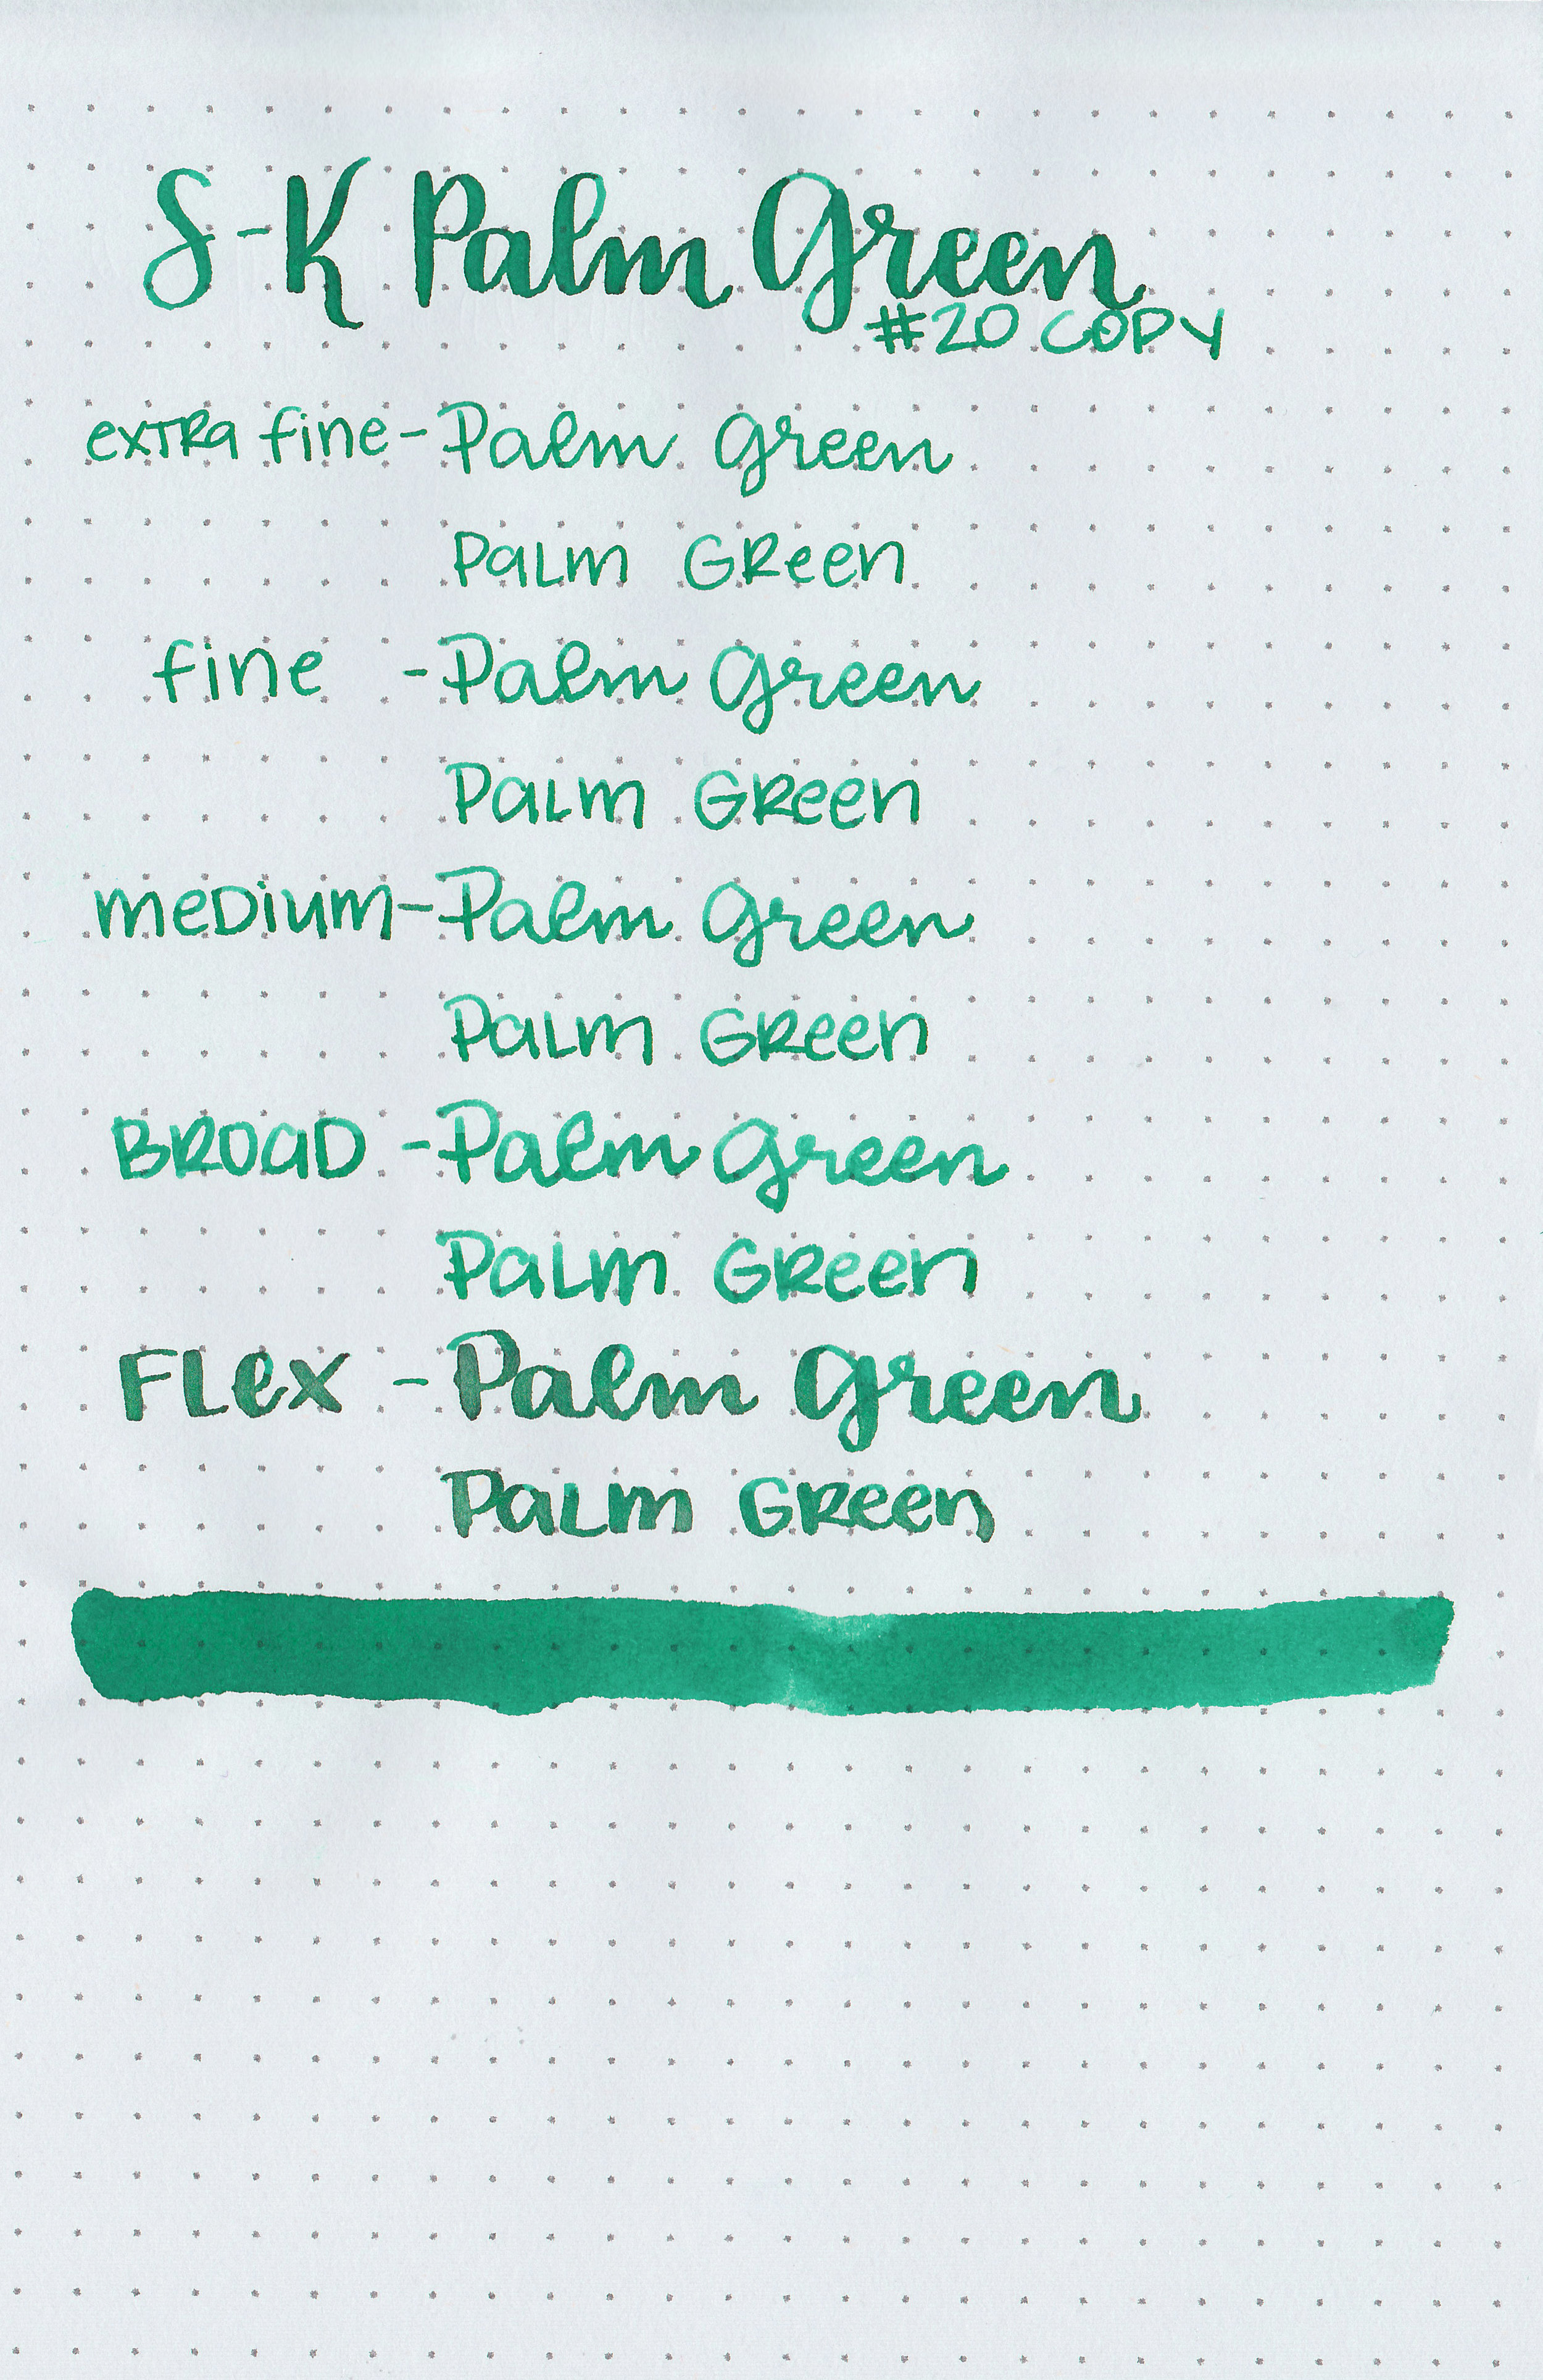 S-K Palm Green
#20 COPY
extra fine - Palm Green
Palm Green
fine - Palm Green
Palm Green
medium - Palm Green
Palm Green
BROAD - Palm Green
Palm Green
FLex - Palm Green
Palm Green